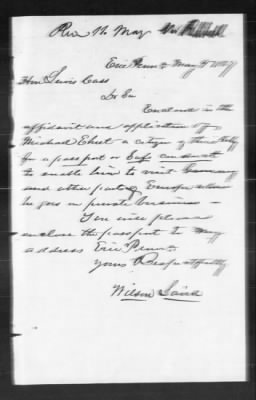 Erie Penn a May
Hon Lewis Cass
Dr Sir
Enclosed is the
affidavit and application of
Michael a citizen of this
for a passport or Safe conduct
to enable him to visit Germany
and other parts of Europe where
he goes on private business —
You will please
enclose the passport to my
address Erie Penna
Yours Respectfully
Wilson Laird